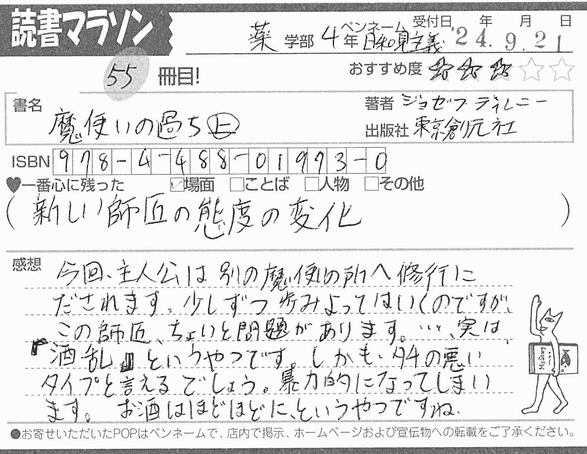 読書マラソン
薬学部 4年 ペンネーム 日和見主義 受付日 '24年 9月 21日
55冊目! おすすめ度 ☆☆☆☆☆
書名 魔使いの過ち 上
著者 ジョゼフ ディレニー
出版社 東京創元社
ISBN 978-4-488-01993-0
♥一番心に残った □場面 □ことば □人物 □その他
(新しい師匠の態度の変化)
感想
今回、主人公は別の魔使の所へ修行に
だされます。少しずつ歩みよってはいくのですが、
この師匠、ちょいと問題があります。…、実は、
「酒乱」というやつです。しかも、タチの悪い
タイプと言えるでしょう。暴力的になってしまい
ます。お酒はほどほどに、というやつですね.
●お寄せいただいたPOPはペンネームで、店内で掲示、ホームページおよび宣伝物への転載をご了承ください。